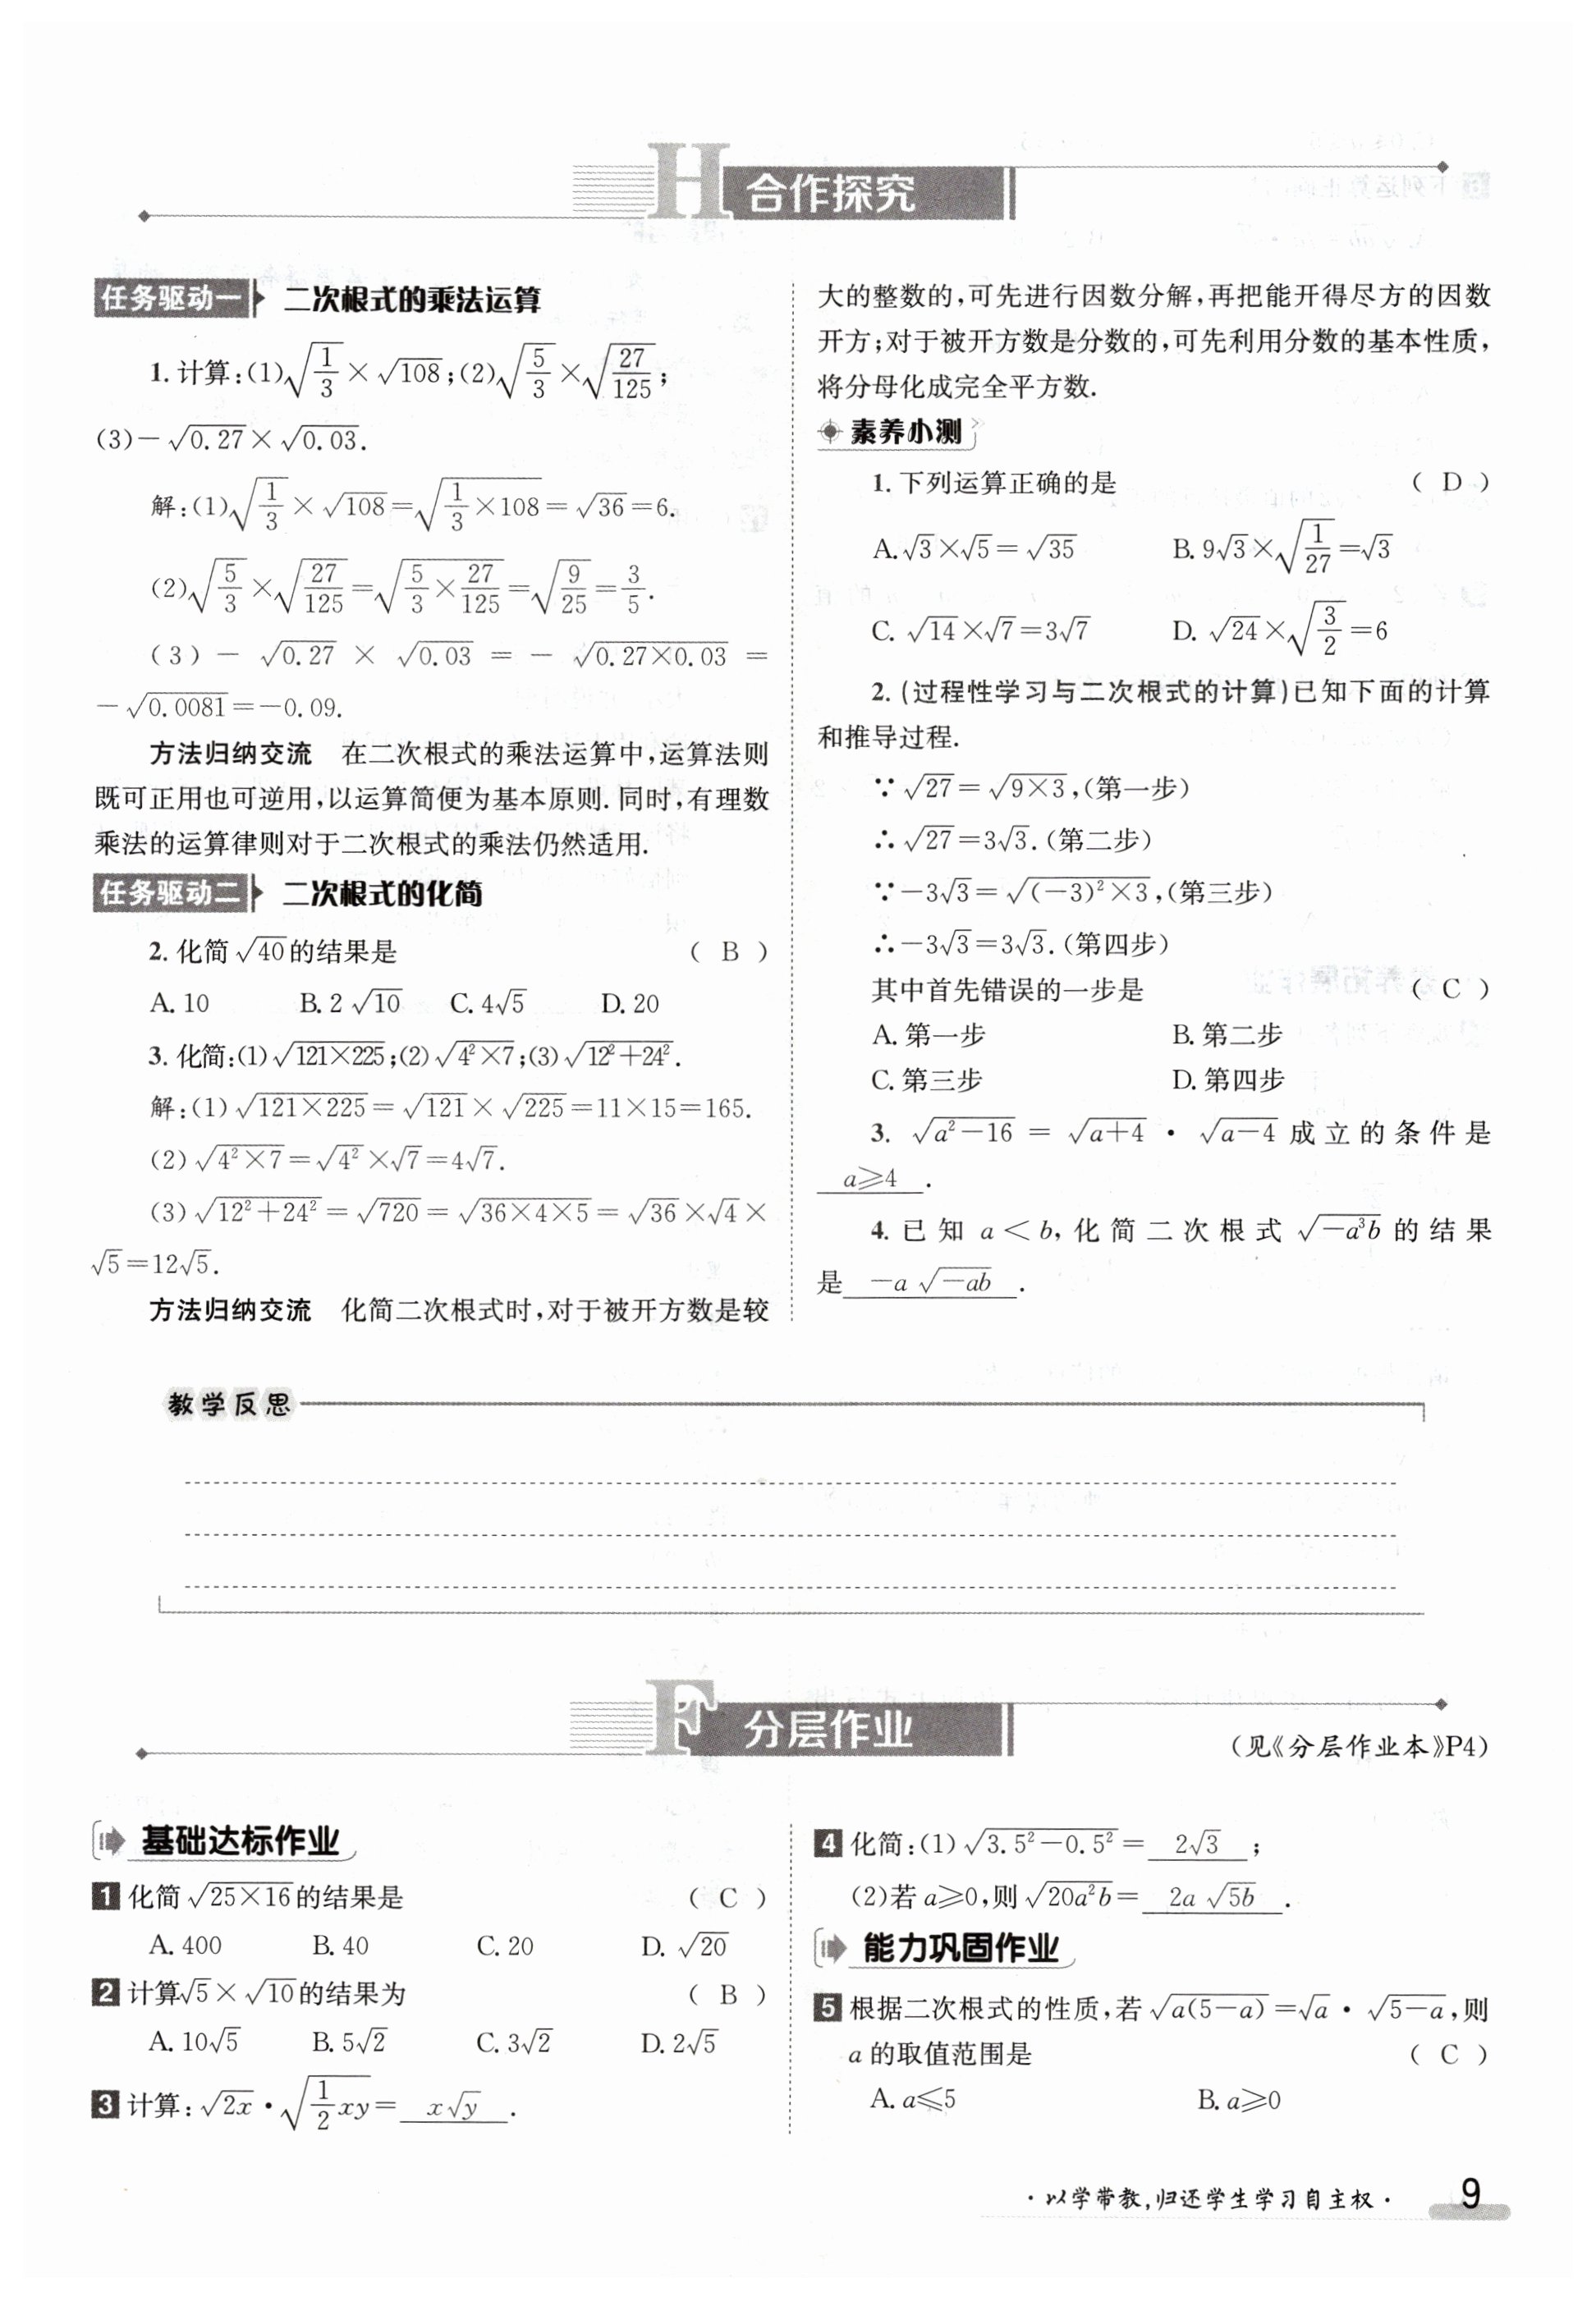 H 合作探究
任务驱动一 二次根式的乘法运算
1. 计算:(1)√(1/3)×√108;(2)√(5/3)×√(27/125);
(3)-√0.27×√0.03.
解:(1)√(1/3)×√108=√(1/3×108)=√36=6.
(2)√(5/3)×√(27/125)=√(5/3×27/125)=√(9/25)=3/5.
(3)-√0.27×√0.03=-√(0.27×0.03)=
-√0.0081=-0.09.
方法归纳交流 在二次根式的乘法运算中,运算法则
既可正用也可逆用,以运算简便为基本原则.同时,有理数
乘法的运算律则对于二次根式的乘法仍然适用.
任务驱动二 二次根式的化简
2. 化简√40的结果是 ( B )
A. 10 B. 2√10 C. 4√5 D. 20
3. 化简:(1)√(121×225);(2)√(4²×7);(3)√(12²+24²).
解:(1)√(121×225)=√121×√225=11×15=165.
(2)√(4²×7)=√4²×√7=4√7.
(3)√(12²+24²)=√720=√(36×4×5)=√36×√4×
√5=12√5.
方法归纳交流 化简二次根式时,对于被开方数是较
大的整数的,可先进行因数分解,再把能开得尽方的因数
开方;对于被开方数是分数的,可先利用分数的基本性质,
将分母化成完全平方数.
素养小测
1. 下列运算正确的是 ( D )
A. √3×√5=√35 B. 9√3×√(1/27)=√3
C. √14×√7=3√7 D. √24×√(3/2)=6
2. (过程性学习与二次根式的计算)已知下面的计算
和推导过程.
∵√27=√(9×3),(第一步)
∴√27=3√3.(第二步)
∵-3√3=√((-3)²×3),(第三步)
∴-3√3=3√3.(第四步)
其中首先错误的一步是 ( C )
A. 第一步 B. 第二步
C. 第三步 D. 第四步
3. √(a²-16)=√(a+4)·√(a-4)成立的条件是
a≥4.
4. 已知a<b,化简二次根式√(-a³b)的结果
是 -a√(-ab).
教学反思
F 分层作业
(见《分层作业本》P4)
基础达标作业
1 化简√(25×16)的结果是 ( C )
A. 400 B. 40 C. 20 D. √20
2 计算√5×√10的结果为 ( B )
A. 10√5 B. 5√2 C. 3√2 D. 2√5
3 计算:√(2x)·√(1/2 xy)= x√y.
4 化简:(1)√(3.5²-0.5²)= 2√3;
(2)若a≥0,则√(20a²b)= 2a√(5b).
能力巩固作业
5 根据二次根式的性质,若√(a(5-a))=√a·√(5-a),则
a的取值范围是 ( C )
A. a≤5 B. a≥0
·以学带教,归还学生学习自主权· 9